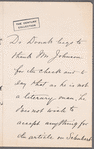 Dr Dvorak begs to
thank Mr Johnson
for the check and to
say that as he is not
a literary man, he
does not want to
accept anything for
the article on Schubert